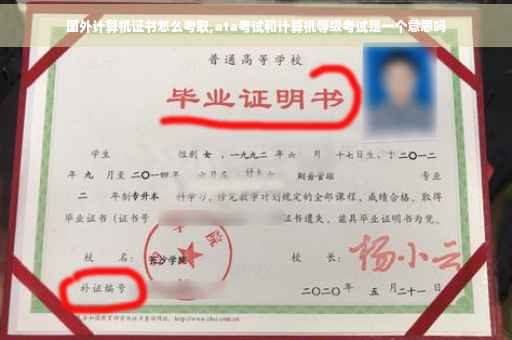 国外计算机证书怎么考取,ata考试和计算机等级考试是一个意思吗
普通高等学校
毕业证明书
学生 性别 女 ，一九九二 年 六 月 十七日生，于 二〇一二
年 九 月至 二〇一四年 六月在 财务管理 专业
二 年制 专升本 科学习，修完教学计划规定的全部课程，成绩合格，取得
毕业证书（证书号 证书遗失，兹具毕业证明书为凭。
校 名： 长沙学院 校 长： 杨小云
补证编号 二〇二〇年 五 月 二十一 日